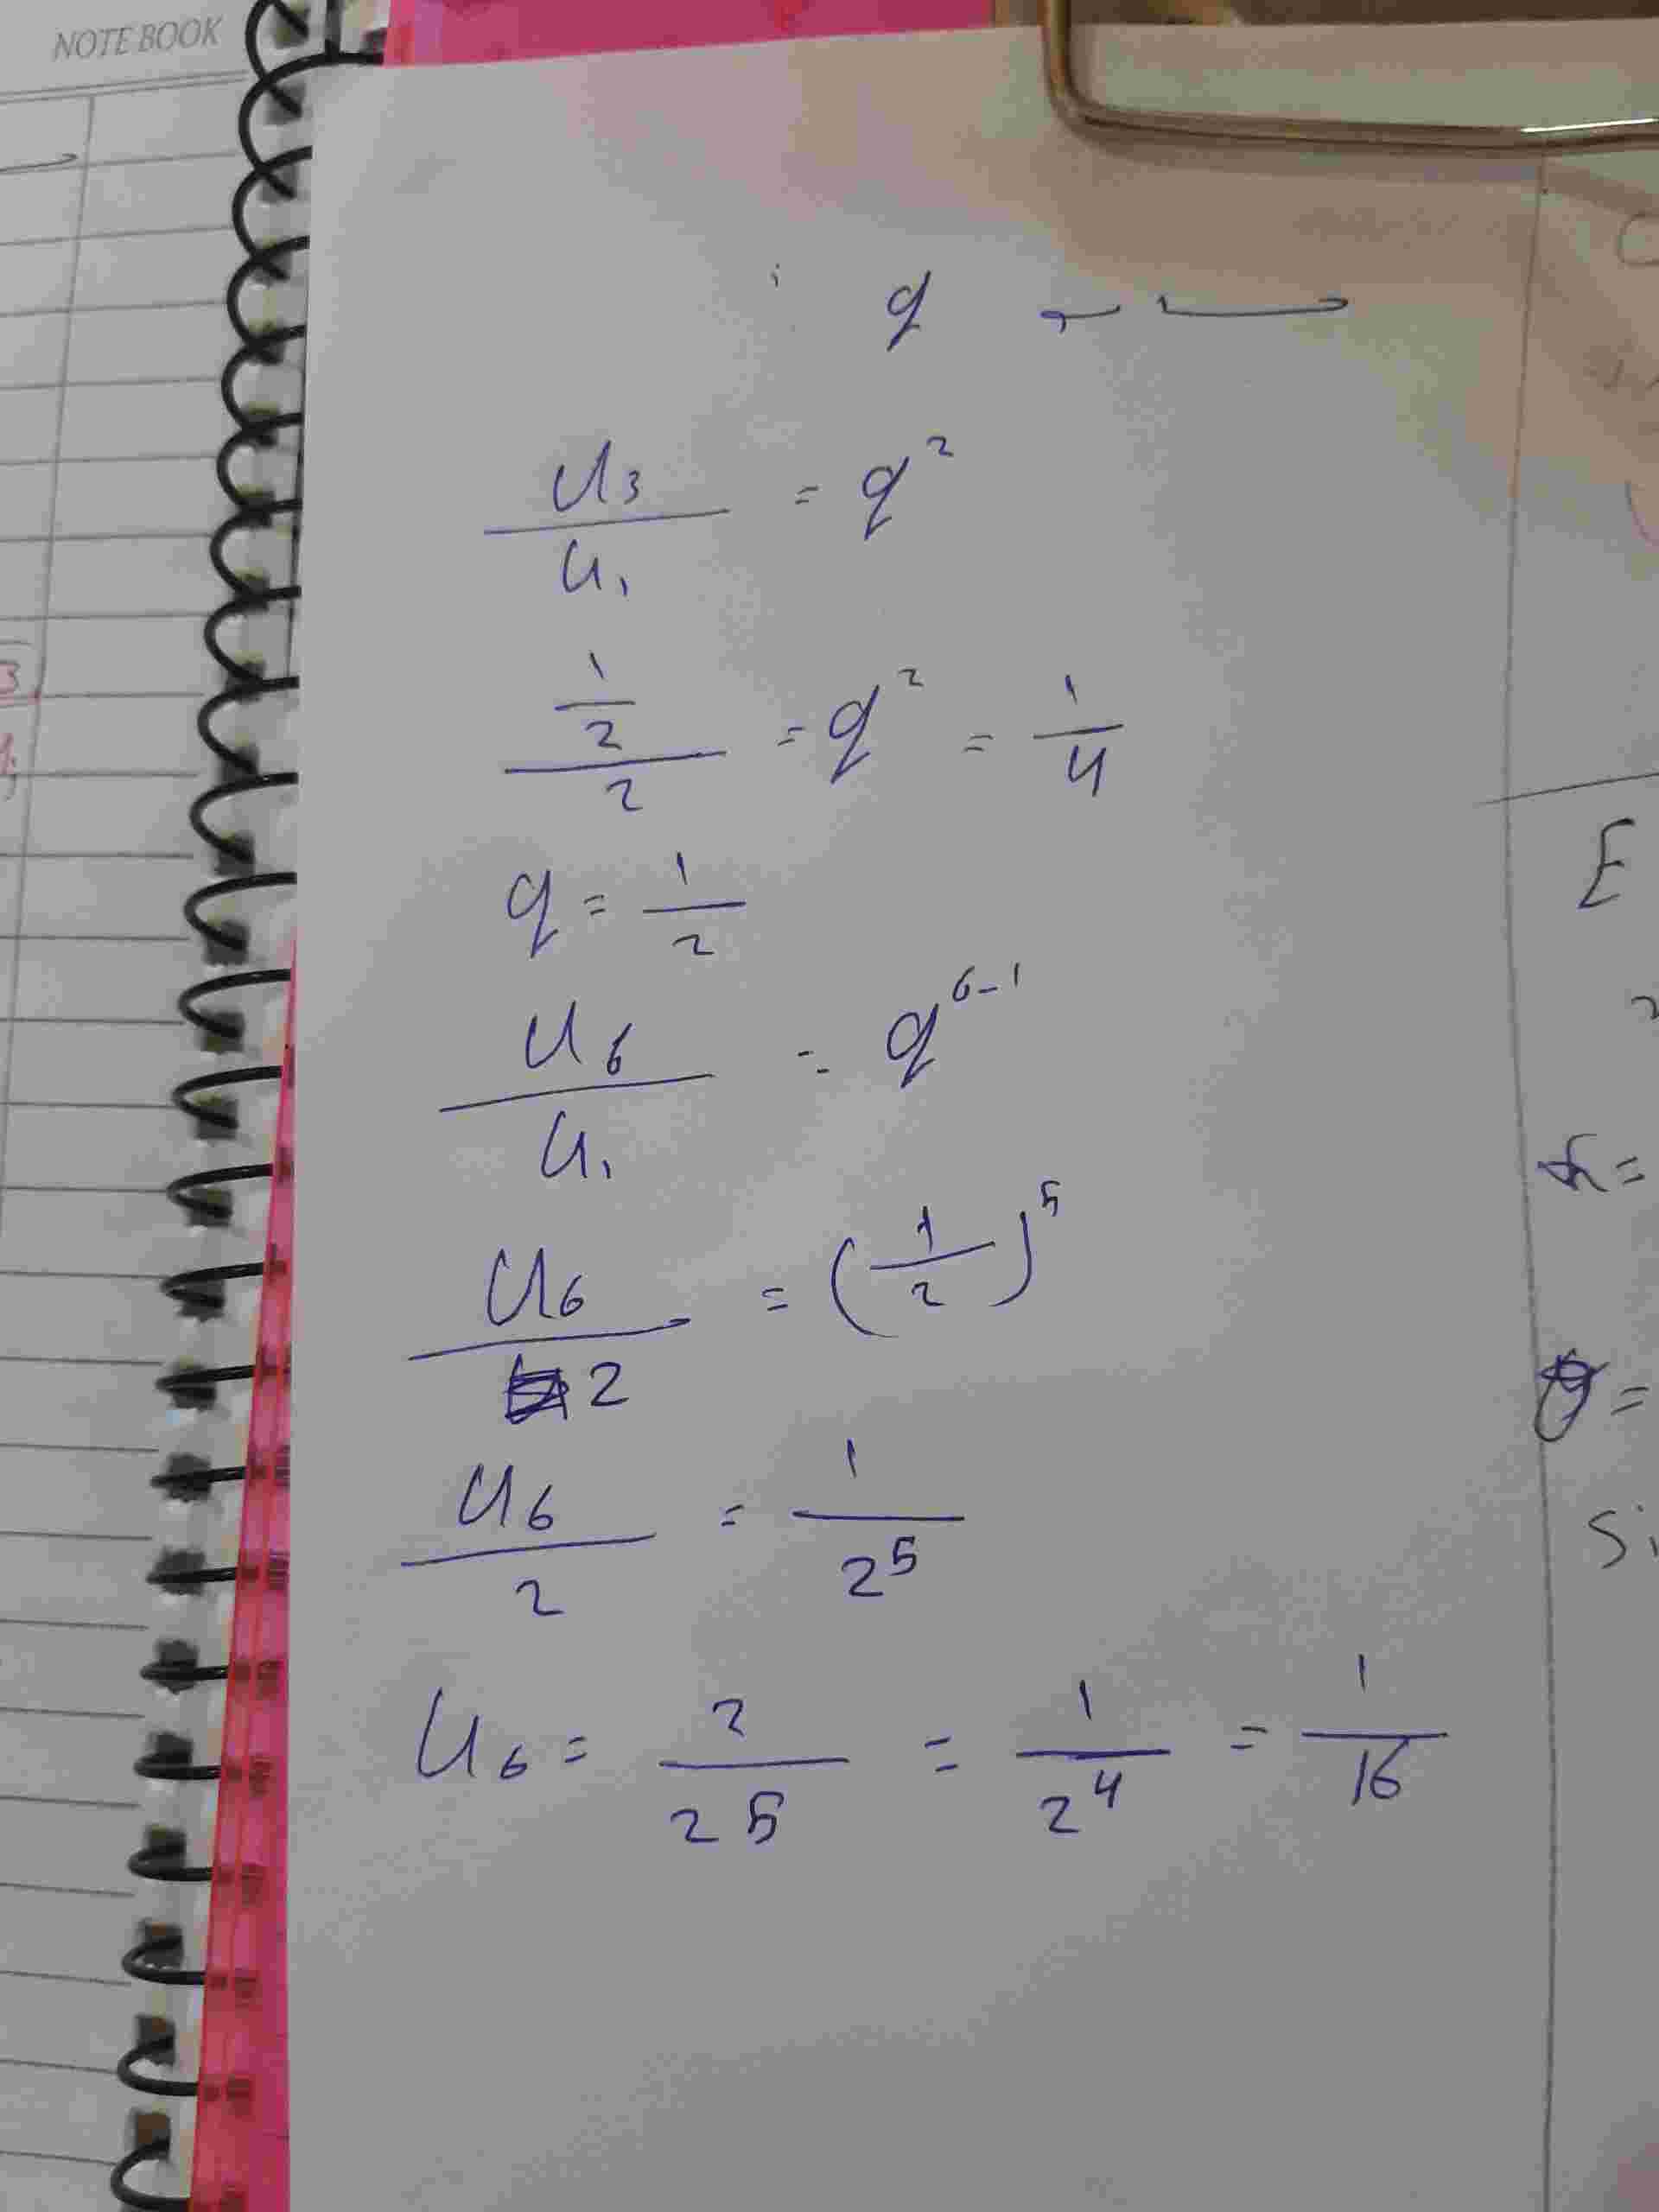 NOTE BOOK
q
u₃/u₁ = q²
(1/2)/2 = q² = 1/4
q = 1/2
u₆/u₁ = q⁶⁻¹
u₆/2 = (1/2)⁵
u₆/2 = 1/2⁵
u₆ = 2/2⁵ = 1/2⁴ = 1/16
3
E
θ =
Si